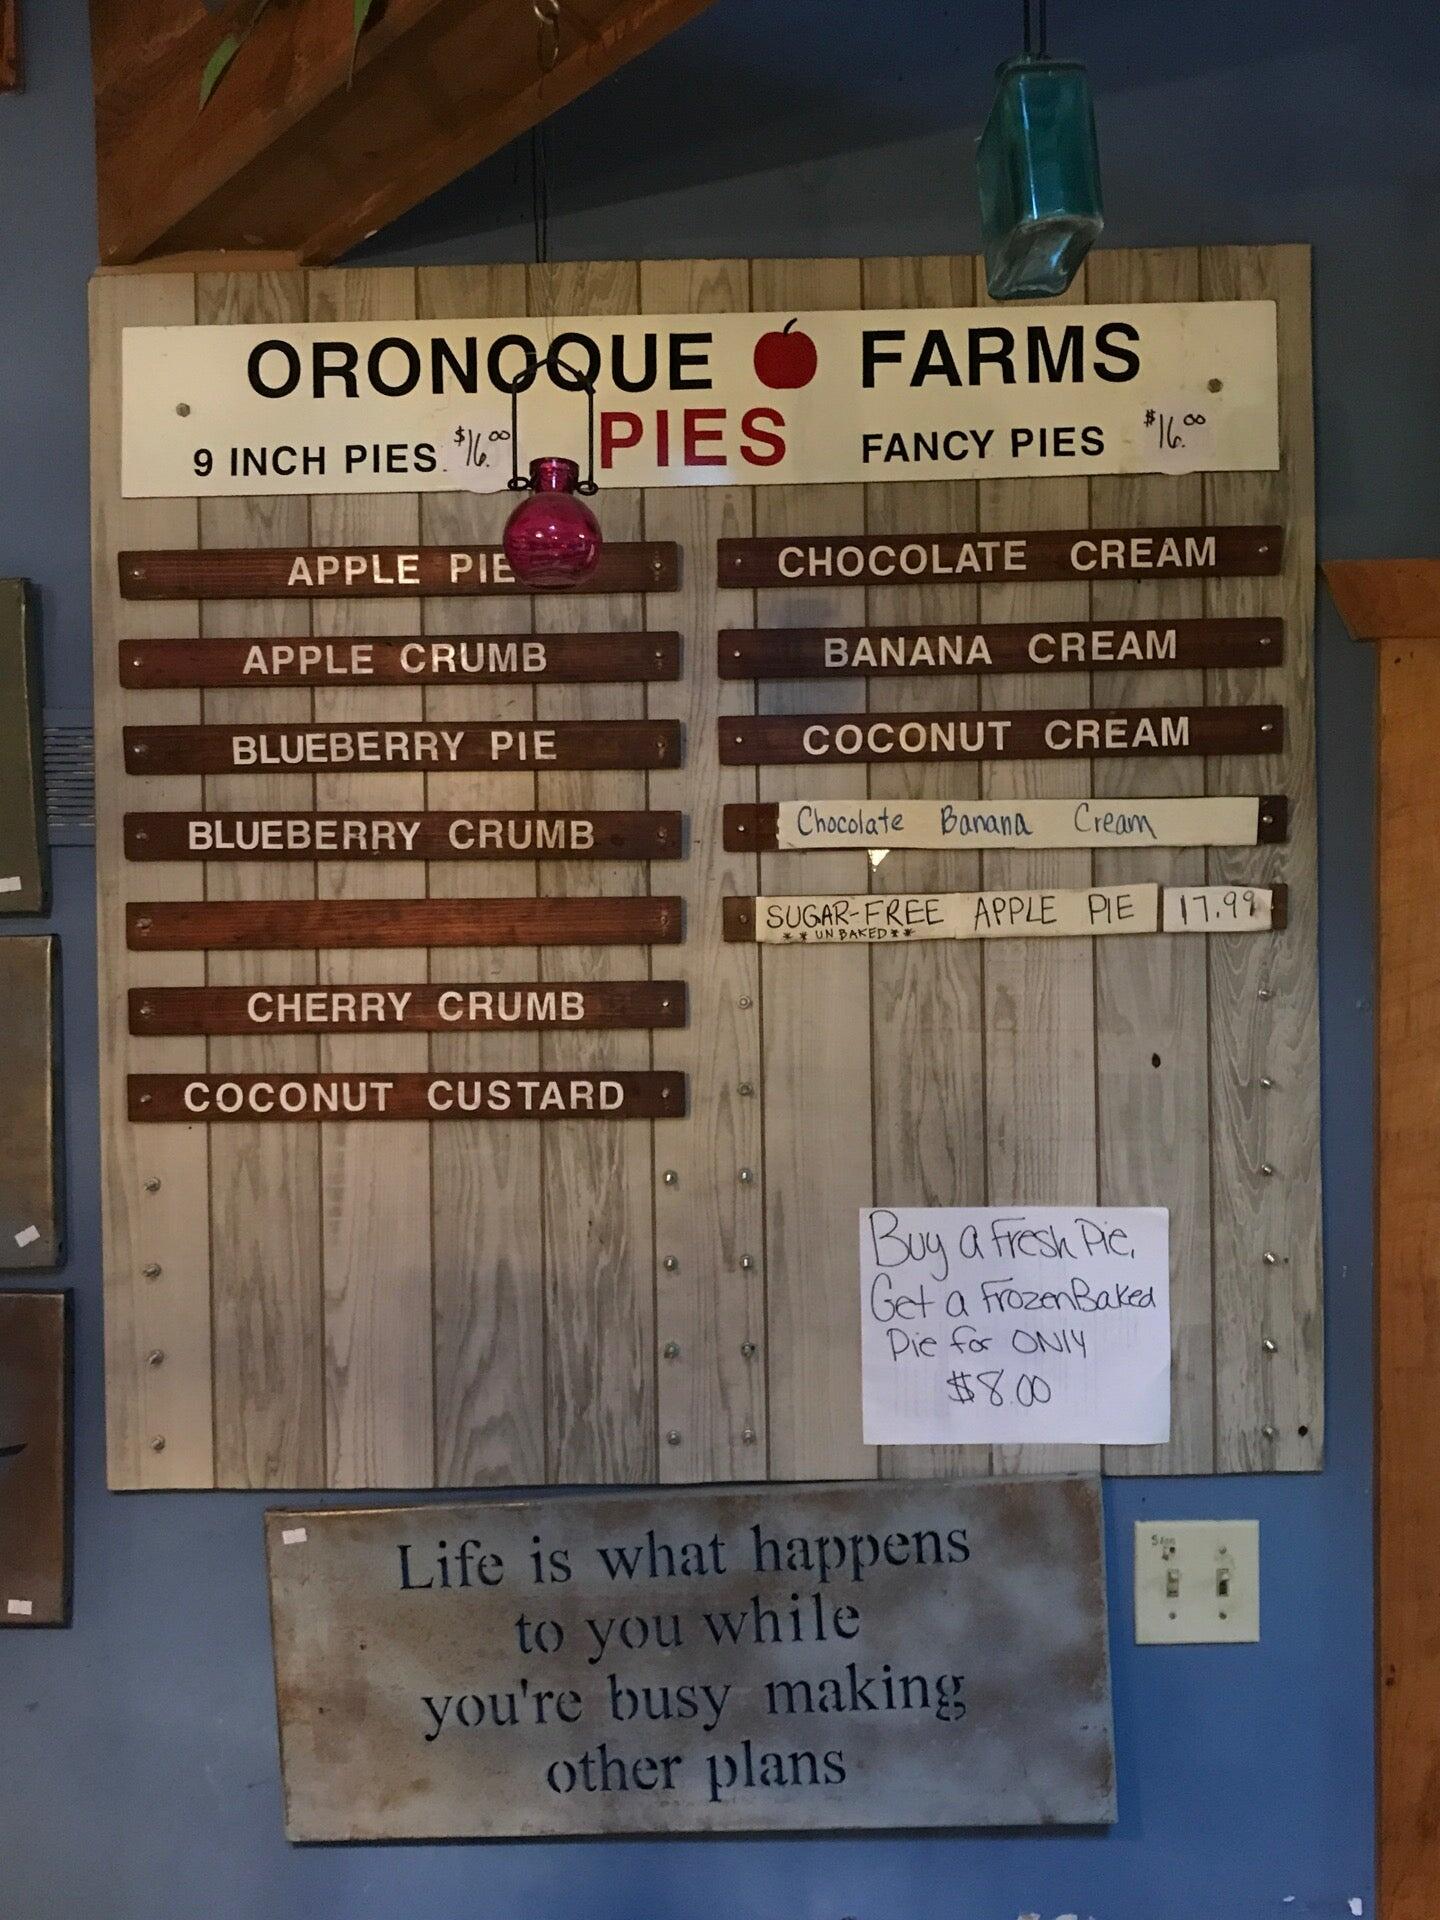 ORONOQUE FARMS
PIES
9 INCH PIES $16.00
FANCY PIES $16.00
APPLE PIE
APPLE CRUMB
BLUEBERRY PIE
BLUEBERRY CRUMB
CHERRY CRUMB
COCONUT CUSTARD
CHOCOLATE CREAM
BANANA CREAM
COCONUT CREAM
Chocolate Banana Cream
SUGAR-FREE APPLE PIE 17.99
**UNBAKED**
Buy a Fresh Pie,
Get a Frozen Baked
Pie for ONLY
$8.00
Life is what happens
to you while
you're busy making
other plans